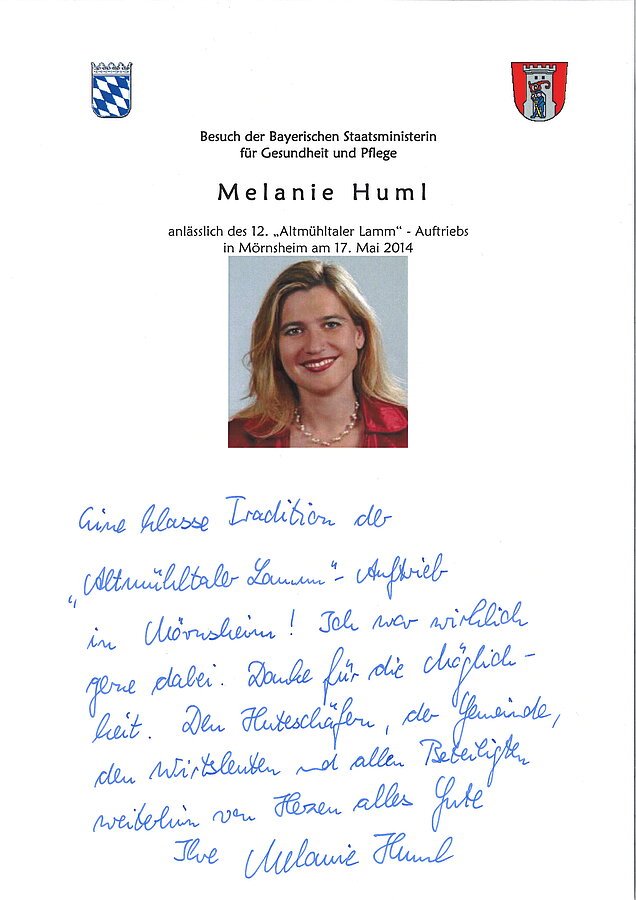 Besuch der Bayerischen Staatsministerin
für Gesundheit und Pflege
Melanie Huml
anlässlich des 12. „Altmühltaler Lamm“ - Auftriebs
in Mörnsheim am 17. Mai 2014
Eine klasse Tradition der
„Altmühltaler Lamm“ - Auftrieb
in Mörnsheim! Ich war wirklich
gerne dabei. Danke für die Möglich-
keit. Den Huteschäfern, der Gemeinde,
den Wirtsleuten und allen Beteiligten
weiterhin von Herzen alles Gute
Ihre Melanie Huml